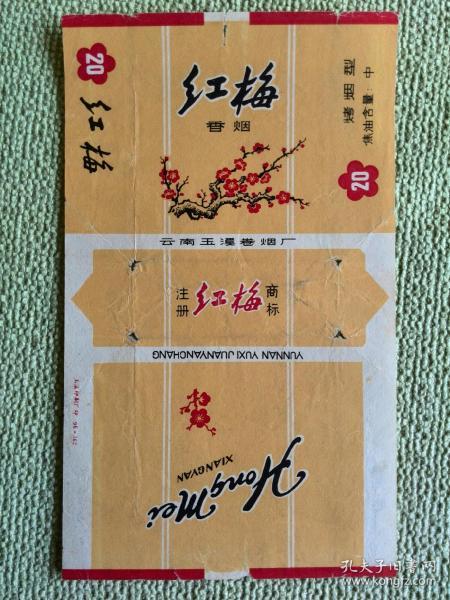 20
红梅
红梅
香烟
烤烟型
焦油含量:中
20
云南玉溪卷烟厂
注册
红梅
商标
YUNNAN YUXI JUANYANCHANG
Hong Mei
XIANGYAN
孔夫子旧书网
www.kongfz.com